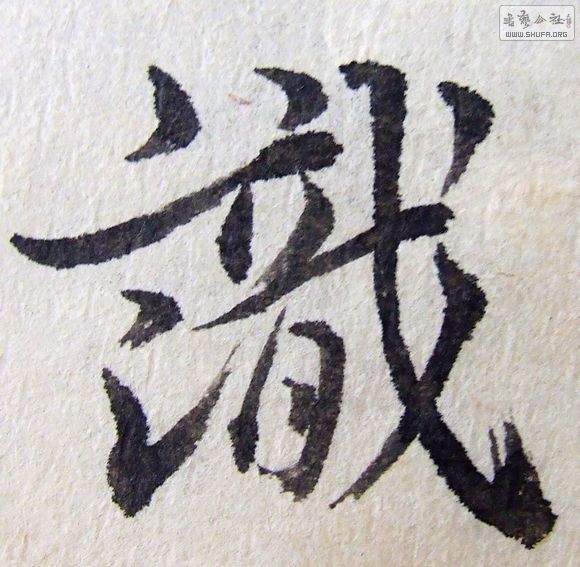 識
書藝公社
WWW.SHUFA.ORG